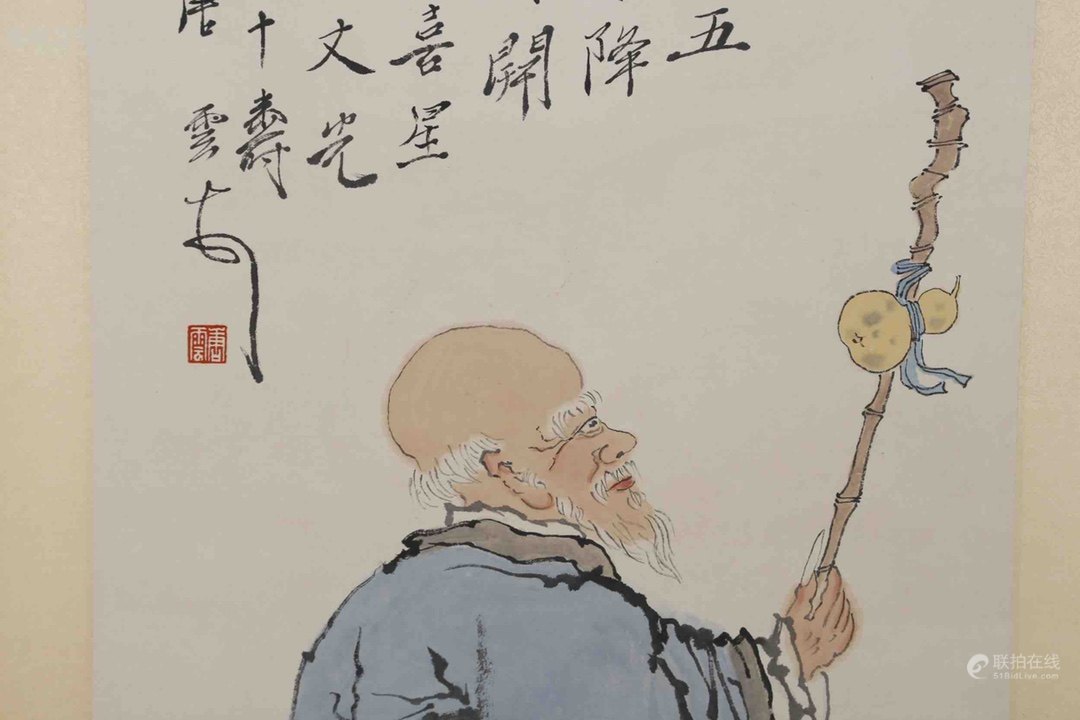 五
降
開
喜星
丈光
十壽
唐雲
唐雲
联拍在线
51BidLive.com